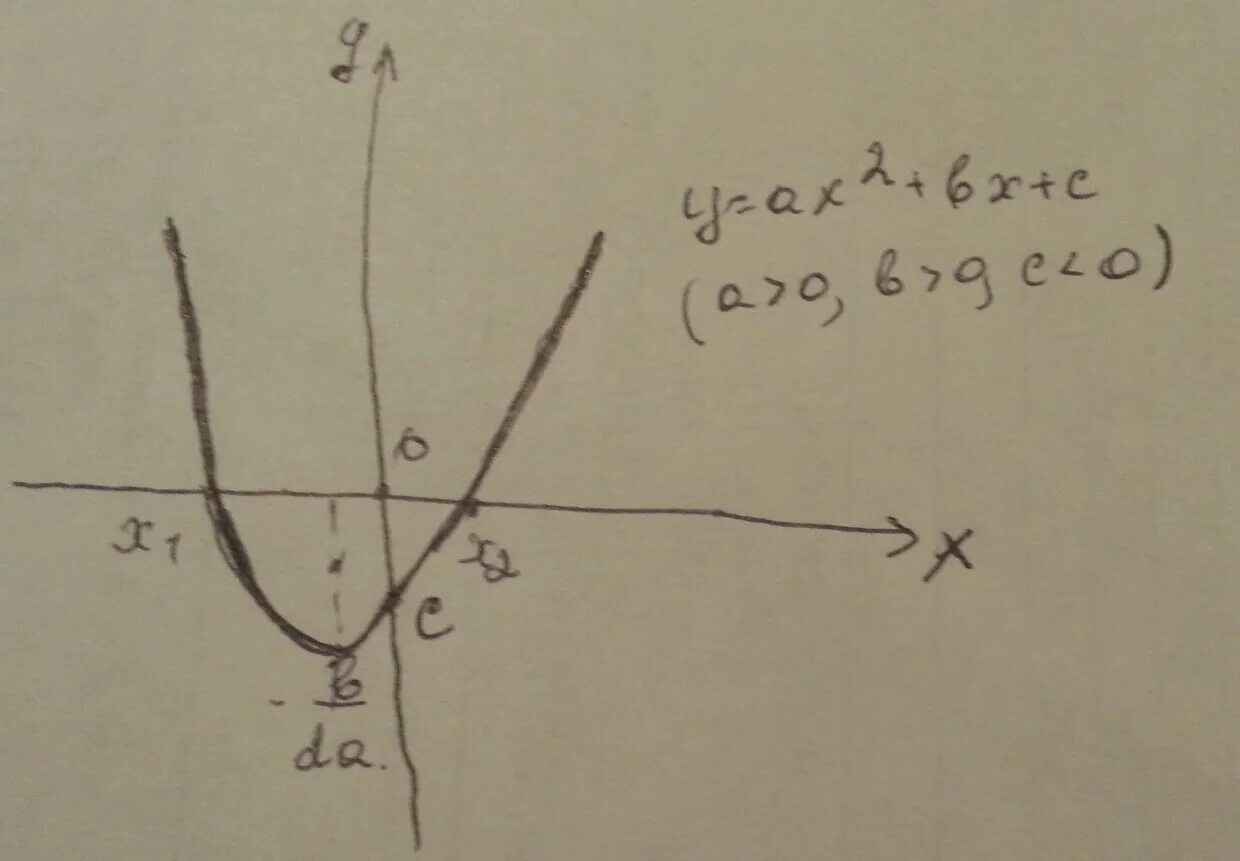 y
y=ax²+bx+c
(a>0, b>0, c<0)
0
x₁
x₂
x
c
- b
2a.